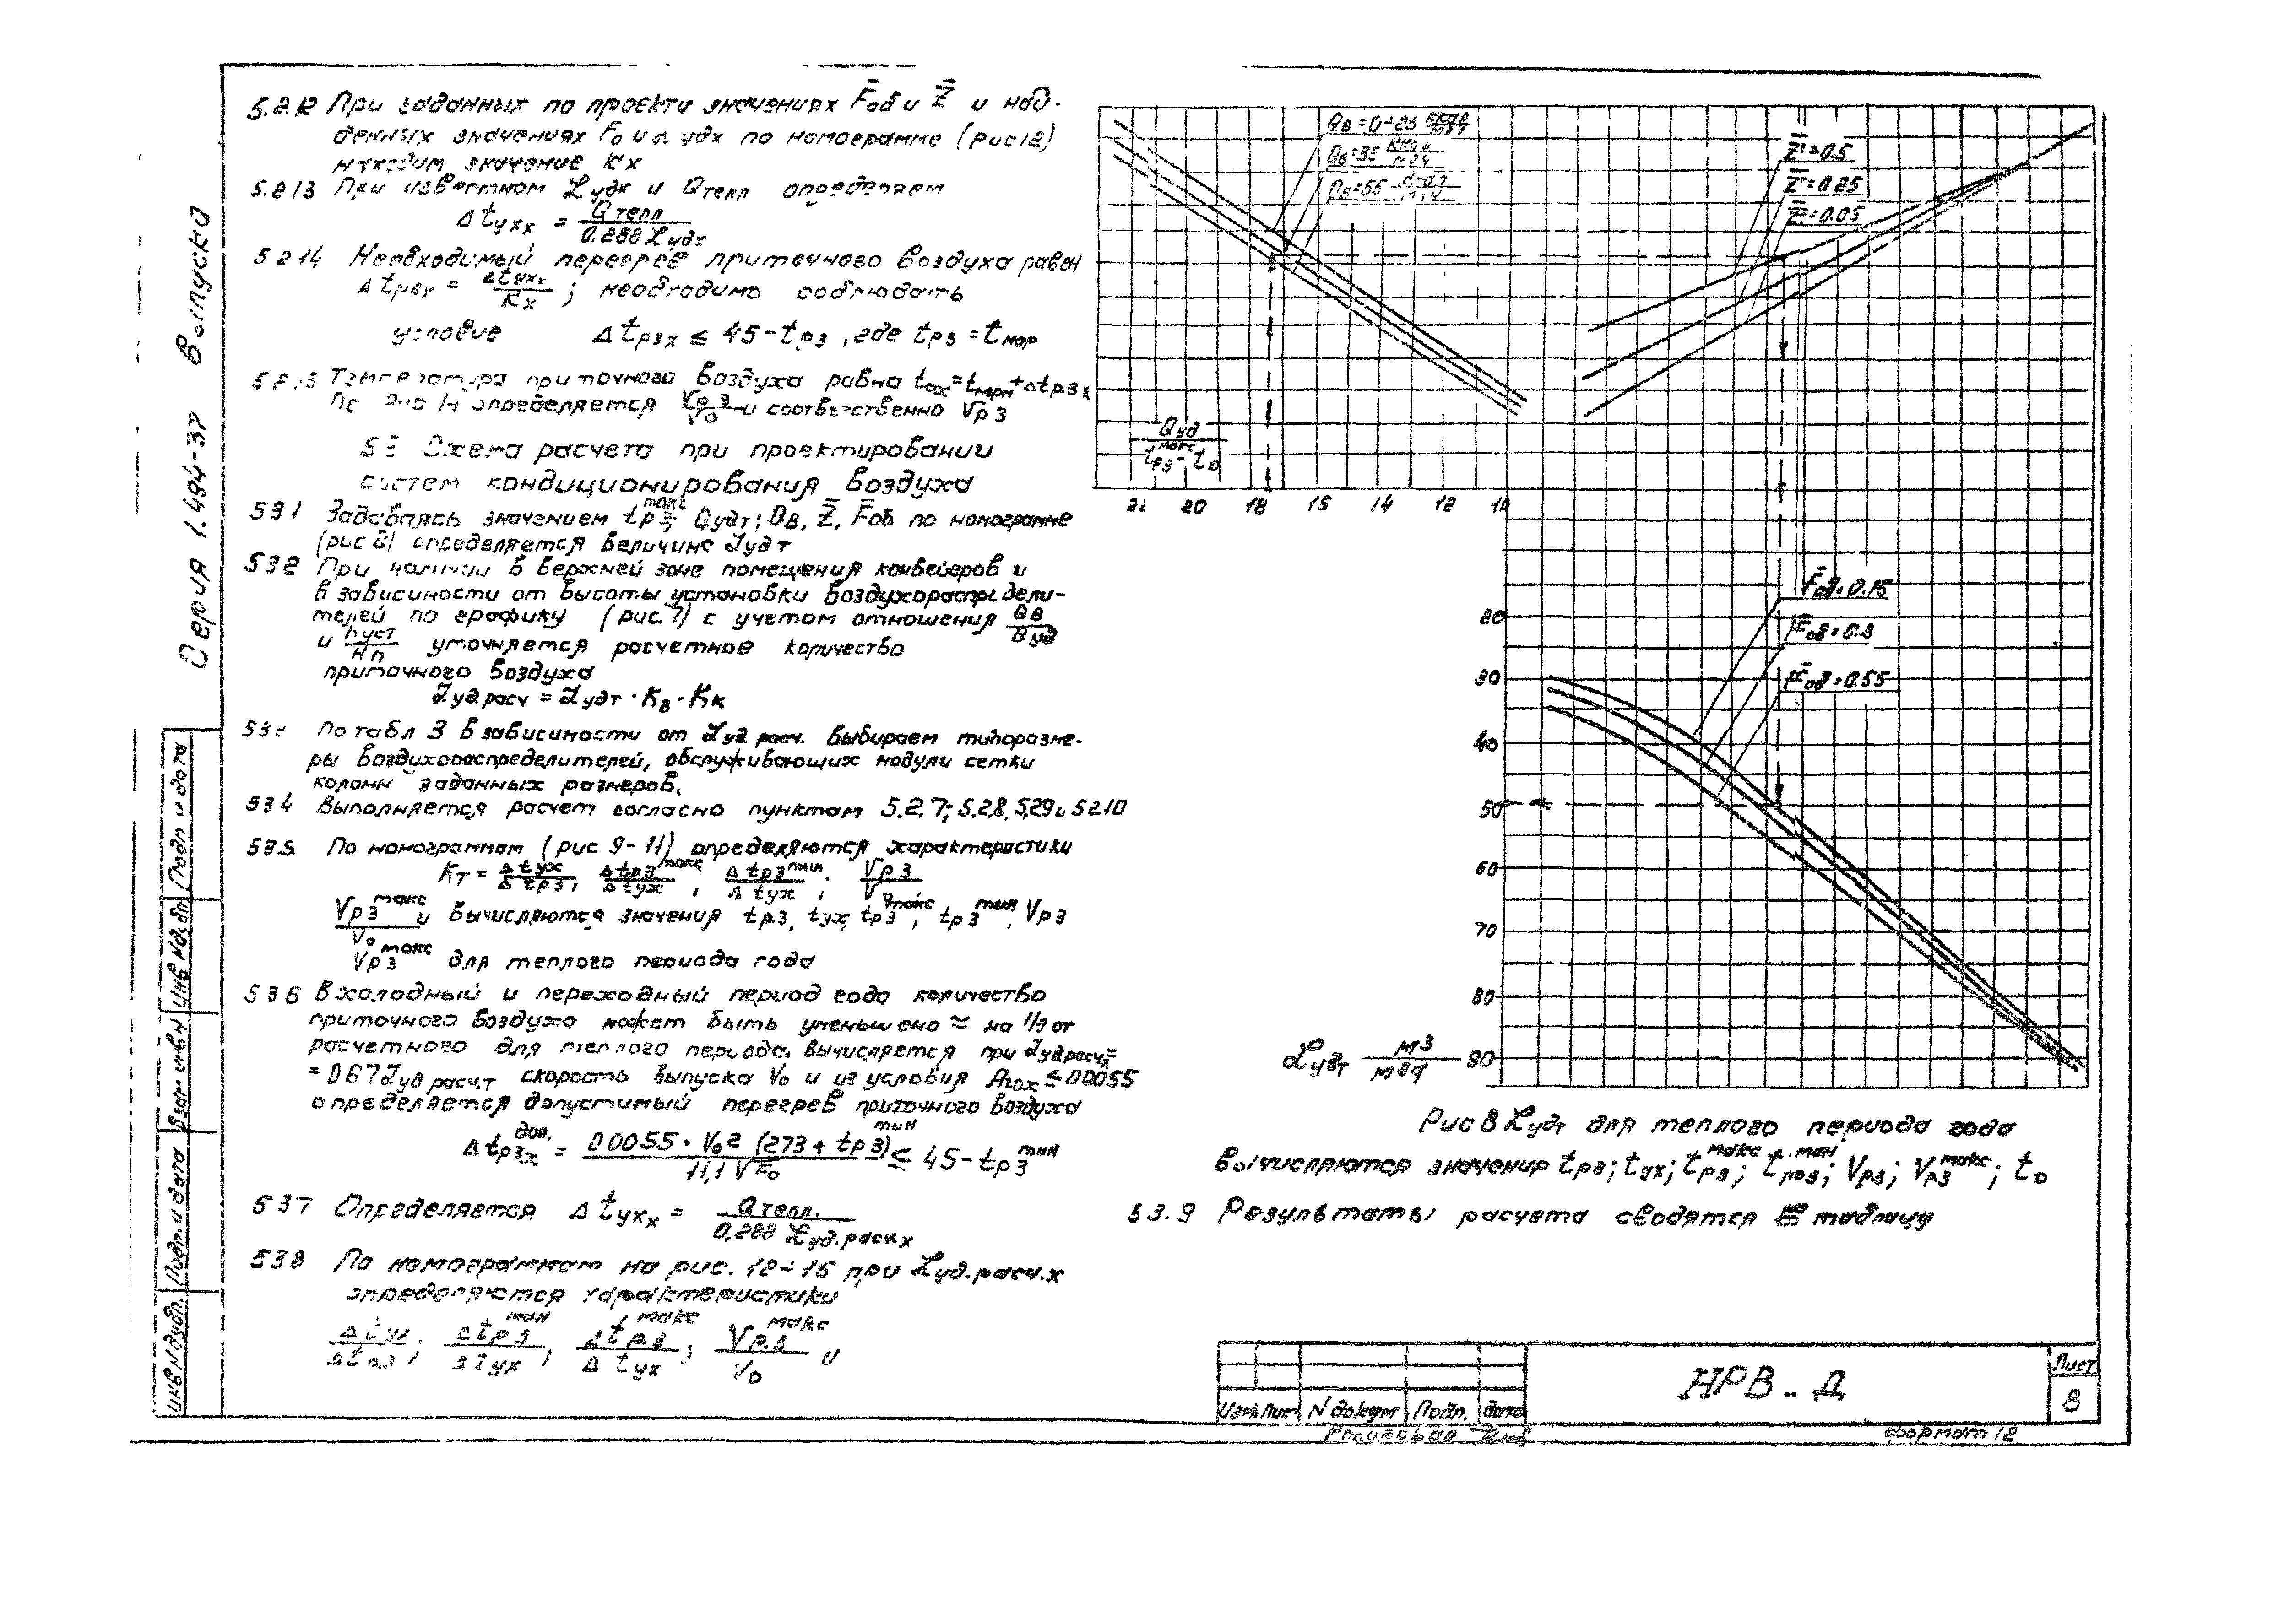 Серия 1.494-37 Выпуск 0
5.2.12 При заданных по проекту значениях F̄об и Z̄ и най-
денных значениях F₀ и Lудх по номограмме (рис 12)
находим значение Kх
5.2.13 При известном Lудх и Qтепл определяем
Δtухх = Qтепл / 0.288 Lудх
5.2.14 Необходимый перегрев приточного воздуха равен
Δtрзх = Δtухх / Kх ; необходимо соблюдать
условие Δtрзх ≤ 45 - tрз , где tрз = tнор
5.2.15 Температура приточного воздуха равна tох = tнорм + Δtрзх
По рис 14 определяется Vрз / V₀ и соответственно Vрз
5.3 Схема расчета при проектировании
систем кондиционирования воздуха
5.3.1 Задаваясь значением tрз макс; Qудт; Qв, Z̄, F̄об по номограмме
(рис 8) определяется величина Lудт
5.3.2 При наличии в верхней зоне помещения конвейеров и
в зависимости от высоты установки воздухораспредели-
телей по графику (рис. 7) с учетом отношения Qв / Qуд
и hуст / Hп уточняется расчетное количество
приточного воздуха
Lуд расч = Lудт · Kв · Kк
5.3.3 По табл 3 в зависимости от Lуд расч. выбираем типоразме-
ры воздухораспределителей, обслуживающих модули сетки
колонн заданных размеров.
5.3.4 Выполняется расчет согласно пунктам 5.2.7; 5.2.8, 5.2.9 и 5.2.10
5.3.5 По номограммам (рис 9-11) определяются характеристики
Kт = Δtух / Δtрз ; Δtрз макс / Δtух , Δtрз мин / Δtух ; Vрз / V₀
Vрз макс / V₀ и вычисляются значения tрз, tух, tрз макс , tрз мин , Vрз
Vрз макс для теплого периода года
5.3.6 В холодный и переходный период года количество
приточного воздуха может быть уменьшено ≈ на 1/3 от
расчетного для теплого периода. Вычисляется при Lуд расч х =
= 0.67 Lуд расч.т скорость выпуска V₀ и из условия Arох ≤ 0.0055
определяется допустимый перегрев приточного воздуха
Δtрзх доп. = 0.0055 · V₀² (273 + tрз мин) / 11,1 √F₀ ≤ 45 - tрз мин
5.3.7 Определяется Δtухх = Qтепл. / 0,288 Lуд.расч.х
5.3.8 По номограммам на рис. 12÷15 при Lуд.расч.х
определяются характеристики
Δtух / Δtрз ; Δtрз мин / Δtух ; Δtрз макс / Δtух ; Vрз макс / V₀ и
Qв = 0÷23 ккал / м²ч
Qв = 35 ккал / м²ч
Qв = 55
Z̄ = 0.5
Z̄ = 0.25
Z̄ = 0.05
Qуд / tрз макс - t₀
22 20 18 15 14 12 10
F̄об = 0.15
F̄об = 0.3
F̄об = 0.55
20
30
40
50
60
70
80
Lудт м³ / м²ч 90
Рис 8 Lудт для теплого периода года
вычисляются значения tрз; tух; tрз макс; tрз мин; Vрз; Vрз макс; t₀
5.3.9 Результаты расчета сводятся в таблицу
Инв N дубл. Подп. и дата Взам инв N Инв N дубл Подп и дата
Изм Лист N докум Подп. дата
НРВ .. Д
Лист
8
Копировал
Формат 12